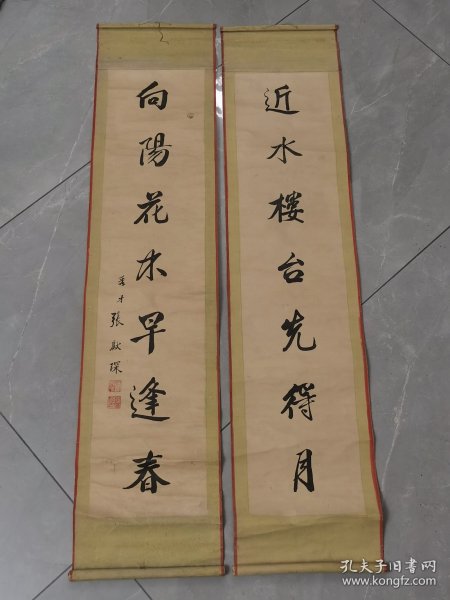 近水楼台先得月
向陽花木早逢春
張獻琛
孔夫子旧书网
www.kongfz.com